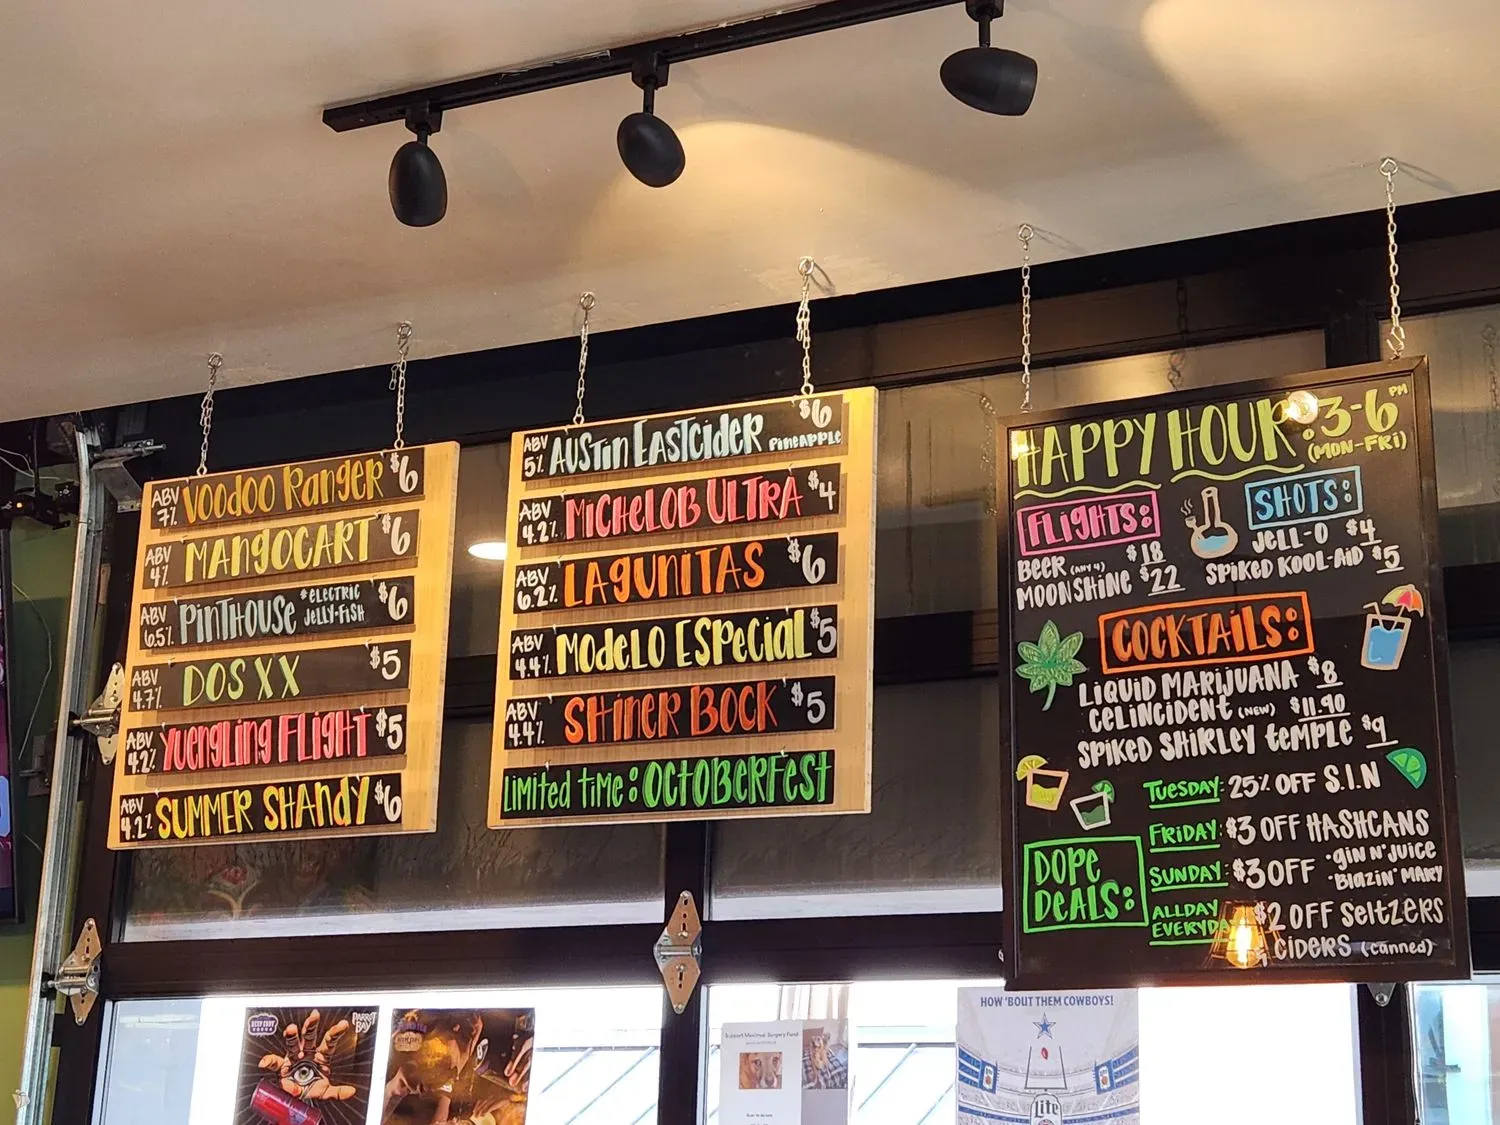 ABV 7% VOODOO RANGER $6
ABV 4% MANGOCART $6
ABV 6.5% PINTHOUSE *ELECTRIC JELLY-FISH $6
ABV 4.7% DOS XX $5
ABV 4.2% YUENGLING FLIGHT $5
ABV 4.2% SUMMER SHANDY $6
ABV 5% AUSTIN EASTCIDER PINEAPPLE $6
ABV 4.2% MICHELOB ULTRA $4
ABV 6.2% LAGUNITAS $6
ABV 4.4% MODELO ESPECIAL $5
ABV 4.4% SHINER BOCK $5
LIMITED TIME: OCTOBERFEST
HAPPY HOUR: 3-6 PM
(MON-FRI)
FLIGHTS:
BEER (ANY 4) $18
MOONSHINE $22
SHOTS:
JELL-O $4
SPIKED KOOL-AID $5
COCKTAILS:
LIQUID MARIJUANA $8
CELINCIDENT (NEW) $11.90
SPIKED SHIRLEY TEMPLE $9
DOPE
DEALS:
TUESDAY: 25% OFF S.I.N
FRIDAY: $3 OFF HASHCANS
SUNDAY: $3 OFF •GIN N' JUICE
•BLAZIN' MARY
ALLDAY
EVERYDA $2 OFF SELTZERS
CIDERS (canned)
DEEP EDDY
PARROT BAY
Support Maximus' Surgery Fund
HOW 'BOUT THEM COWBOYS!
Lite